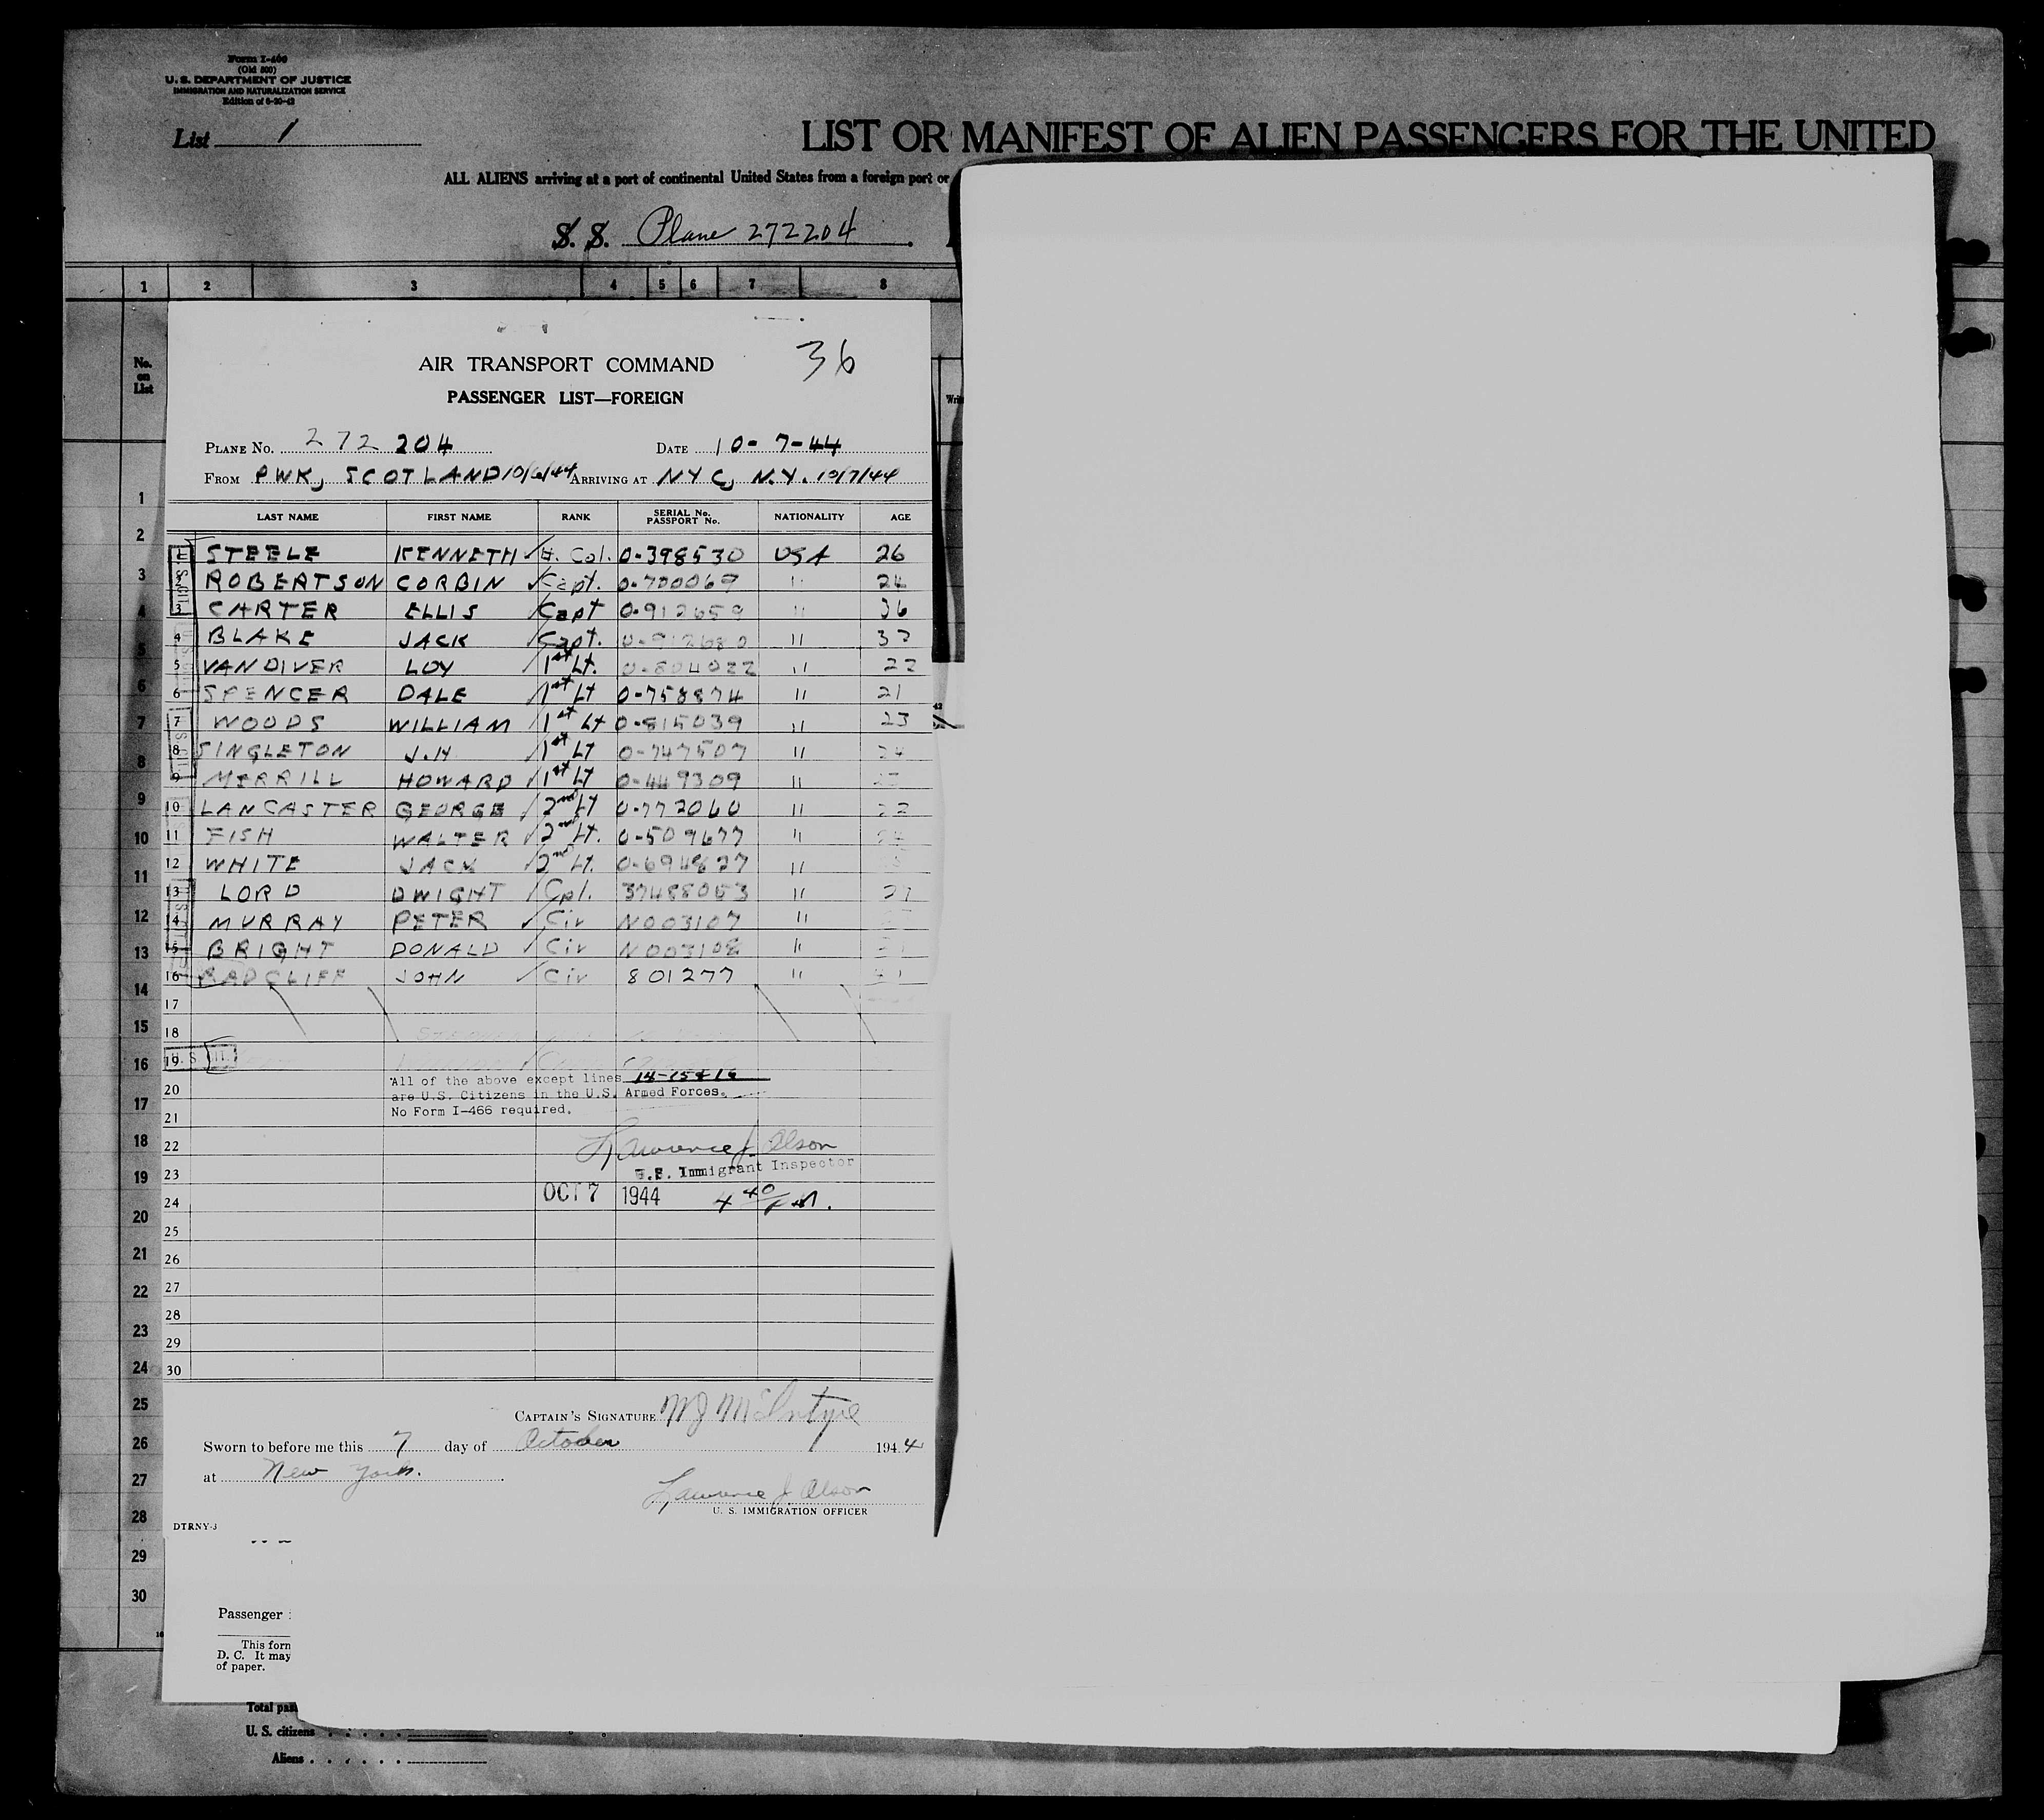 Form I-466
(Old 500)
U. S. DEPARTMENT OF JUSTICE
IMMIGRATION AND NATURALIZATION SERVICE
Edition of 6-20-43
List 1
LIST OR MANIFEST OF ALIEN PASSENGERS FOR THE UNITED
ALL ALIENS arriving at a port of continental United States from a foreign port or
S. S. Plane 272204
1 2 3 4 5 6 7 8
No. on List
36
AIR TRANSPORT COMMAND
PASSENGER LIST—FOREIGN
PLANE No. 272 204 DATE 10-7-44
FROM PWK, SCOTLAND 10/6/44 ARRIVING AT NYC, N.Y. 10/7/44
LAST NAME FIRST NAME RANK SERIAL No. PASSPORT No. NATIONALITY AGE
1 STEELE KENNETH Lt. Col. 0-398530 USA 26
2 ROBERTSON CORBIN Capt. 0-700069 " 24
3 CARTER ELLIS Capt 0-912659 " 36
4 BLAKE JACK Capt. "
5 VANDIVER LOY 1st Lt. 0-804022 " 22
6 SPENCER DALE 1st Lt 0-758874 " 21
7 WOODS WILLIAM 1st Lt 0-815039 " 23
8 SINGLETON J.H 1st Lt 0-747507 "
9 MERRILL HOWARD 1st Lt 0-449309 "
10 LANCASTER GEORGE 2nd Lt 0-772060 "
11 FISH WALTER 2nd Lt. 0-509677 "
12 WHITE JACK 2nd Lt. 0-694827 "
13 LORD DWIGHT Cpl. 37488053 "
14 MURRAY PETER Civ N003107 "
15 BRIGHT DONALD Civ N003108 "
16 RADCLIFF JOHN Civ 801277 "
17
18
19
All of the above except lines 14-15&16
20
are U.S. Citizens in the U.S. Armed Forces.
No Form I-466 required.
21
22 Lawrence J. Olson
23 U.S. Immigrant Inspector
24 OCT 7 1944 4 40 P.M.
25
26
27
28
29
30
CAPTAIN'S SIGNATURE WJ McIntyre
Sworn to before me this 7 day of October 1944
at New York.
Lawrence J. Olson
U. S. IMMIGRATION OFFICER
DTRNY-3
Passenger
This form
D. C. It may
of paper.
Total pas
U. S. citizens
Aliens
1
2
3
4
5
6
7
8
9
10
11
12
13
14
15
16
17
18
19
20
21
22
23
24
25
26
27
28
29
30